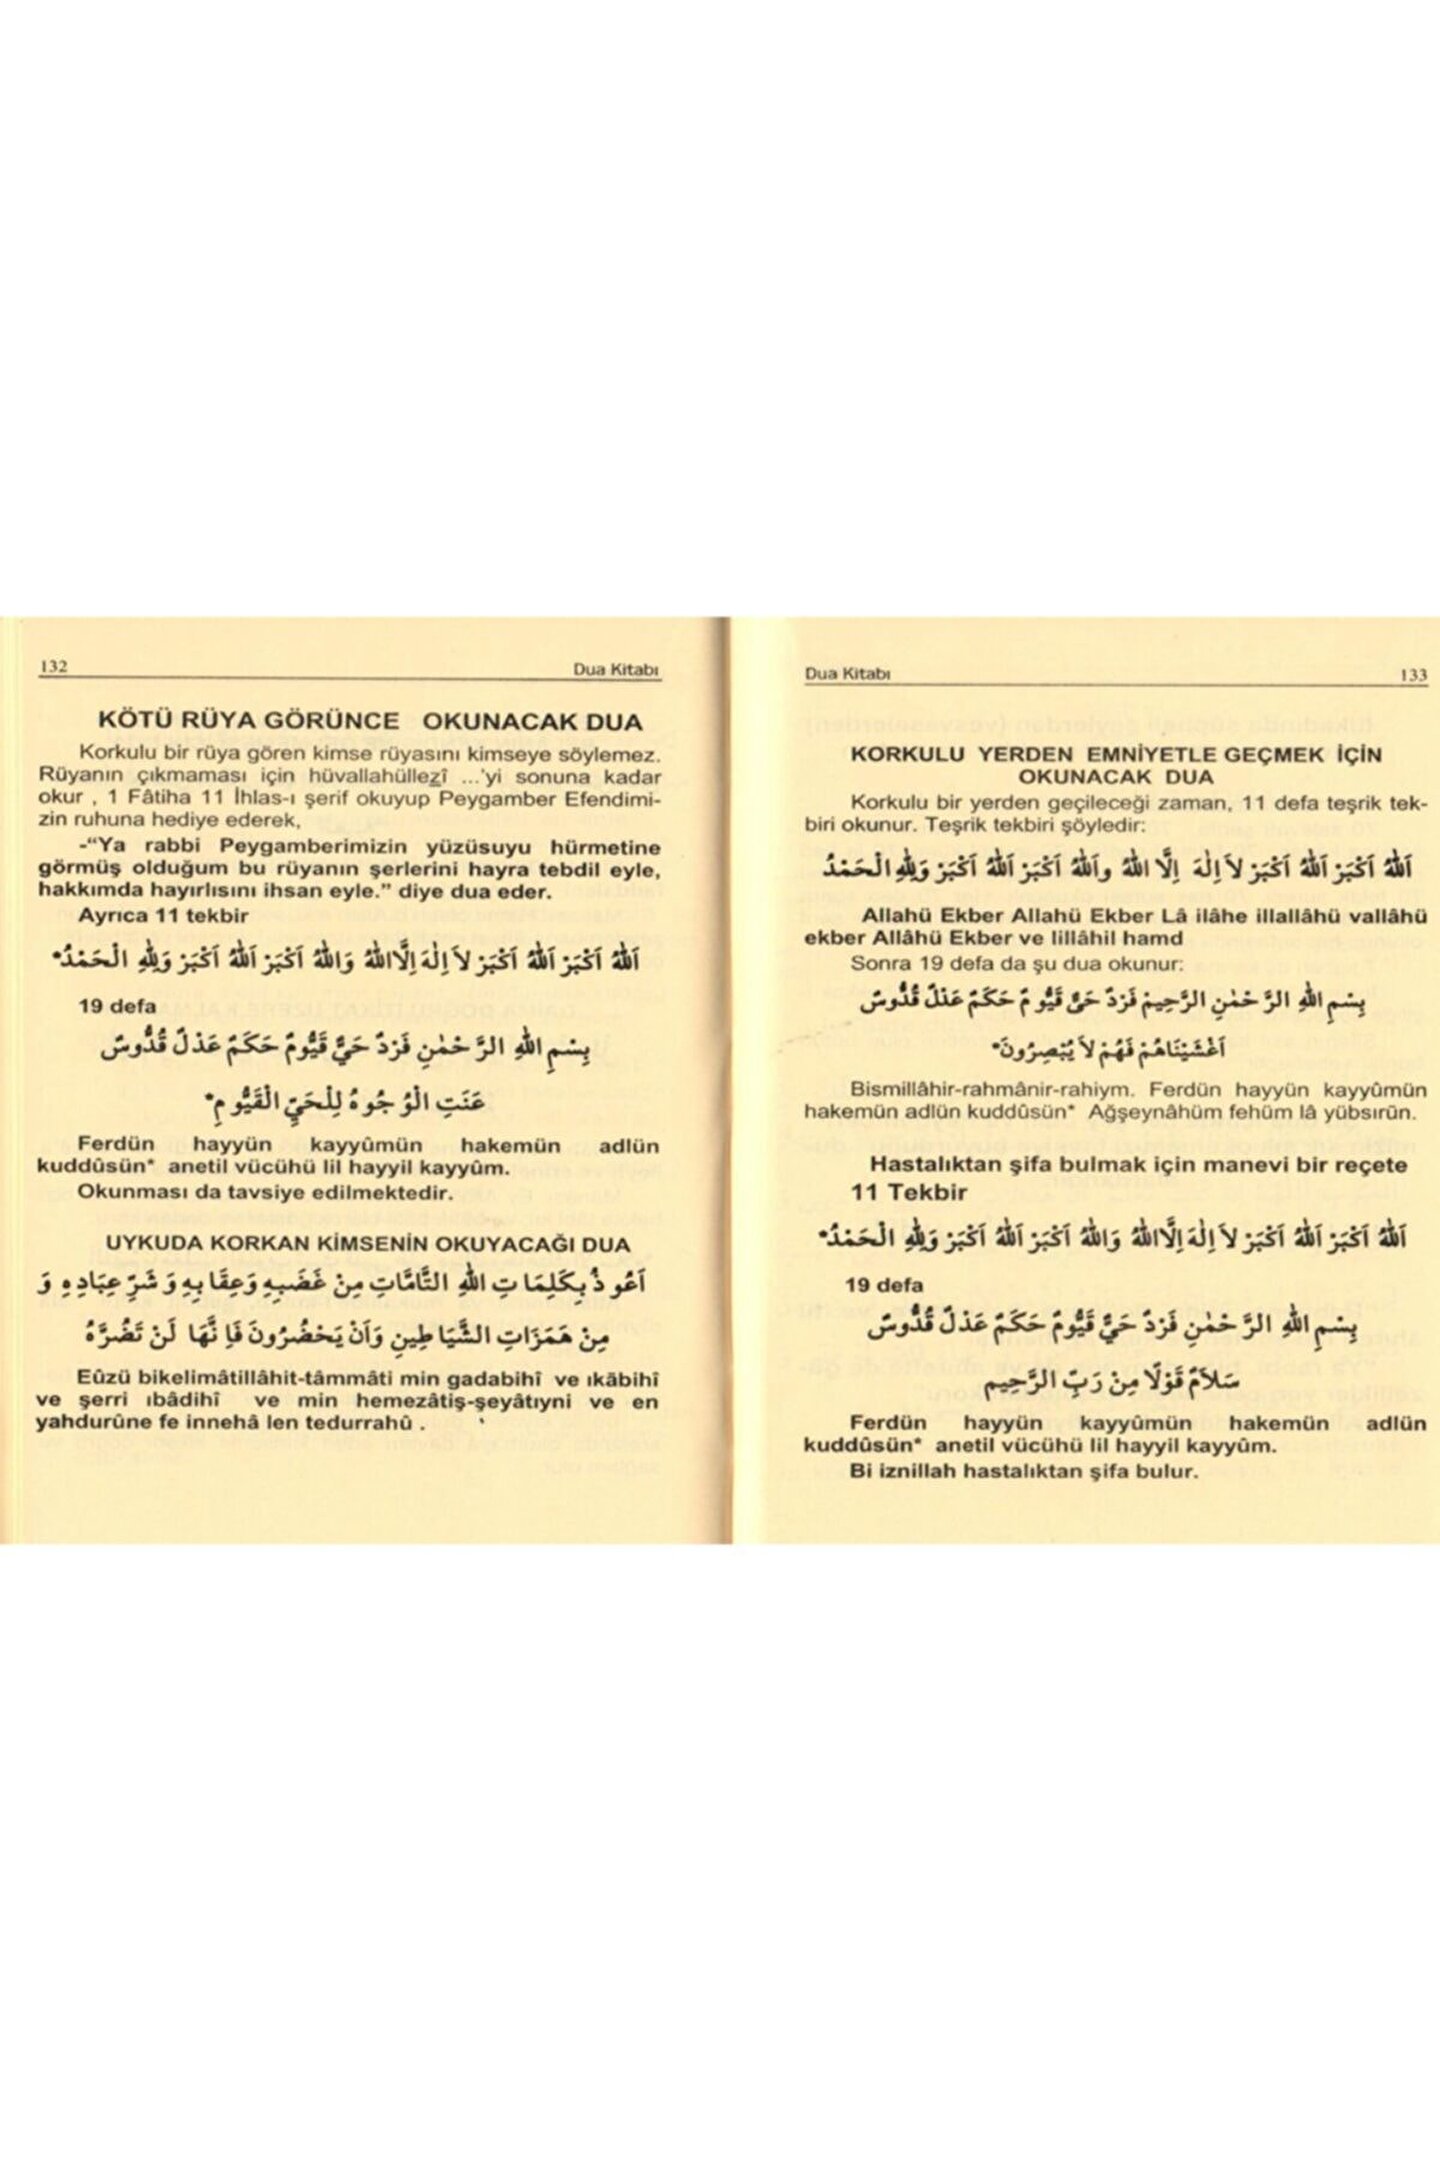 132 Dua Kitabı
KÖTÜ RÜYA GÖRÜNCE OKUNACAK DUA
Korkulu bir rüya gören kimse rüyasını kimseye söylemez.
Rüyanın çıkmaması için hüvallahüllezî ...'yi sonuna kadar
okur , 1 Fâtiha 11 İhlas-ı şerif okuyup Peygamber Efendimi-
zin ruhuna hediye ederek,
-“Ya rabbi Peygamberimizin yüzüsuyu hürmetine
görmüş olduğum bu rüyanın şerlerini hayra tebdil eyle,
hakkımda hayırlısını ihsan eyle.” diye dua eder.
Ayrıca 11 tekbir
اَللّٰهُ اَكْبَرْ اَللّٰهُ اَكْبَرْ لاَ اِلٰهَ اِلَّااللّٰهُ وَاللّٰهُ اَكْبَرْ اَللّٰهُ اَكْبَرْ وَلِلّٰهِ الْحَمْدُ*
19 defa
بِسْمِ اللّٰهِ الرَّحْمٰنِ فَرْدٌ حَيٌّ قَيُّومٌ حَكَمٌ عَدْلٌ قُدُّوسٌ
عَنَتِ الْوُجُوهُ لِلْحَيِّ الْقَيُّومِ*
Ferdün hayyün kayyûmün hakemün adlün
kuddûsün* anetil vücühü lil hayyil kayyûm.
Okunması da tavsiye edilmektedir.
UYKUDA KORKAN KİMSENİN OKUYACAĞI DUA
اَعُوذُ بِكَلِمَاتِ اللّٰهِ التَّامَّاتِ مِنْ غَضَبِهِ وَعِقَابِهِ وَ شَرِّ عِبَادِهِ وَ
مِنْ هَمَزَاتِ الشَّيَاطِينِ وَاَنْ يَحْضُرُونَ فَاِنَّهَا لَنْ تَضُرَّهُ
Eûzü bikelimâtillâhit-tâmmâti min gadabihî ve ıkābihî
ve şerri ıbâdihî ve min hemezâtiş-şeyâtıyni ve en
yahdurûne fe innehâ len tedurrahû .
Dua Kitabı 133
KORKULU YERDEN EMNİYETLE GEÇMEK İÇİN
OKUNACAK DUA
Korkulu bir yerden geçileceği zaman, 11 defa teşrik tek-
biri okunur. Teşrik tekbiri şöyledir:
اَللّٰهُ اَكْبَرْ اَللّٰهُ اَكْبَرْ لاَ اِلٰهَ اِلَّا اللّٰهُ واَللّٰهُ اَكْبَرْ اَللّٰهُ اَكْبَرْ وَلِلّٰهِ الْحَمْدُ
Allahü Ekber Allahü Ekber Lâ ilâhe illallâhü vallâhü
ekber Allâhü Ekber ve lillâhil hamd
Sonra 19 defa da şu dua okunur:
بِسْمِ اللّٰهِ الرَّحْمٰنِ الرَّحِيمْ فَرْدٌ حَىٌّ قَيُّومٌ حَكَمٌ عَدْلٌ قُدُّوسٌ
اَغْشَيْنَاهُمْ فَهُمْ لاَ يُبْصِرُونَ*
Bismillâhir-rahmânir-rahiym. Ferdün hayyün kayyûmün
hakemün adlün kuddûsün* Ağşeynâhüm fehüm lâ yübsırûn.
Hastalıktan şifa bulmak için manevi bir reçete
11 Tekbir
اَللّٰهُ اَكْبَرْ اَللّٰهُ اَكْبَرْ لاَ اِلٰهَ اِلَّااللّٰهُ وَاللّٰهُ اَكْبَرْ اَللّٰهُ اَكْبَرْ وَلِلّٰهِ الْحَمْدُ*
19 defa
بِسْمِ اللّٰهِ الرَّحْمٰنِ فَرْدٌ حَيٌّ قَيُّومٌ حَكَمٌ عَدْلٌ قُدُّوسٌ
سَلاَمٌ قَوْلًا مِنْ رَبِّ الرَّحِيمِ
Ferdün hayyün kayyûmün hakemün adlün
kuddûsün* anetil vücühü lil hayyil kayyûm.
Bi iznillah hastalıktan şifa bulur.